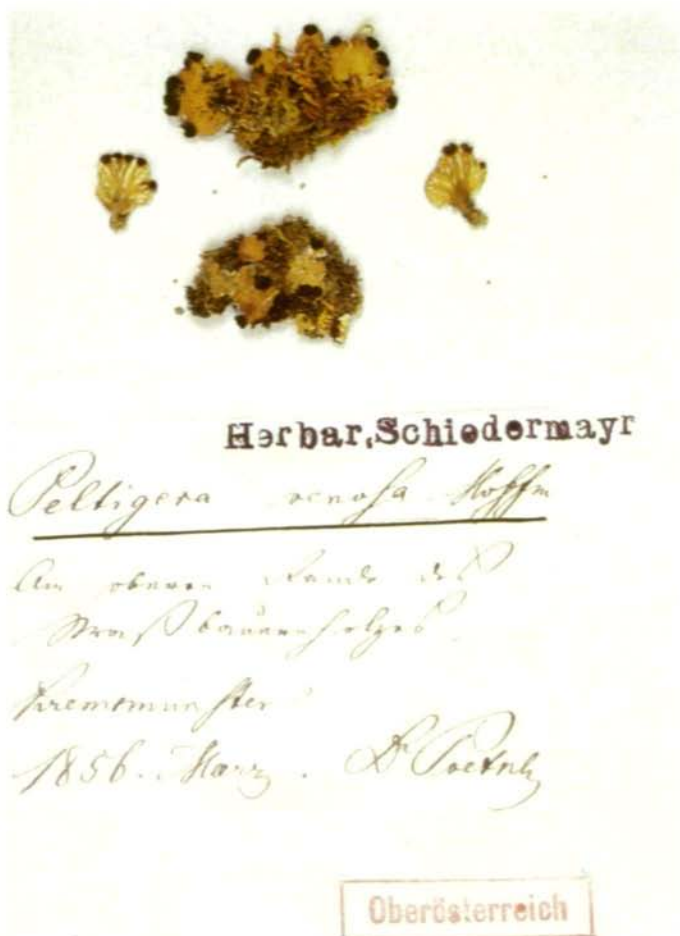 Herbar. Schiedermayr
Peltigera venosa Hoffm
Am oberen Rande des
Straßbauernholzes
Kremsmünster
1856. März. Dr Poetsch
Oberösterreich